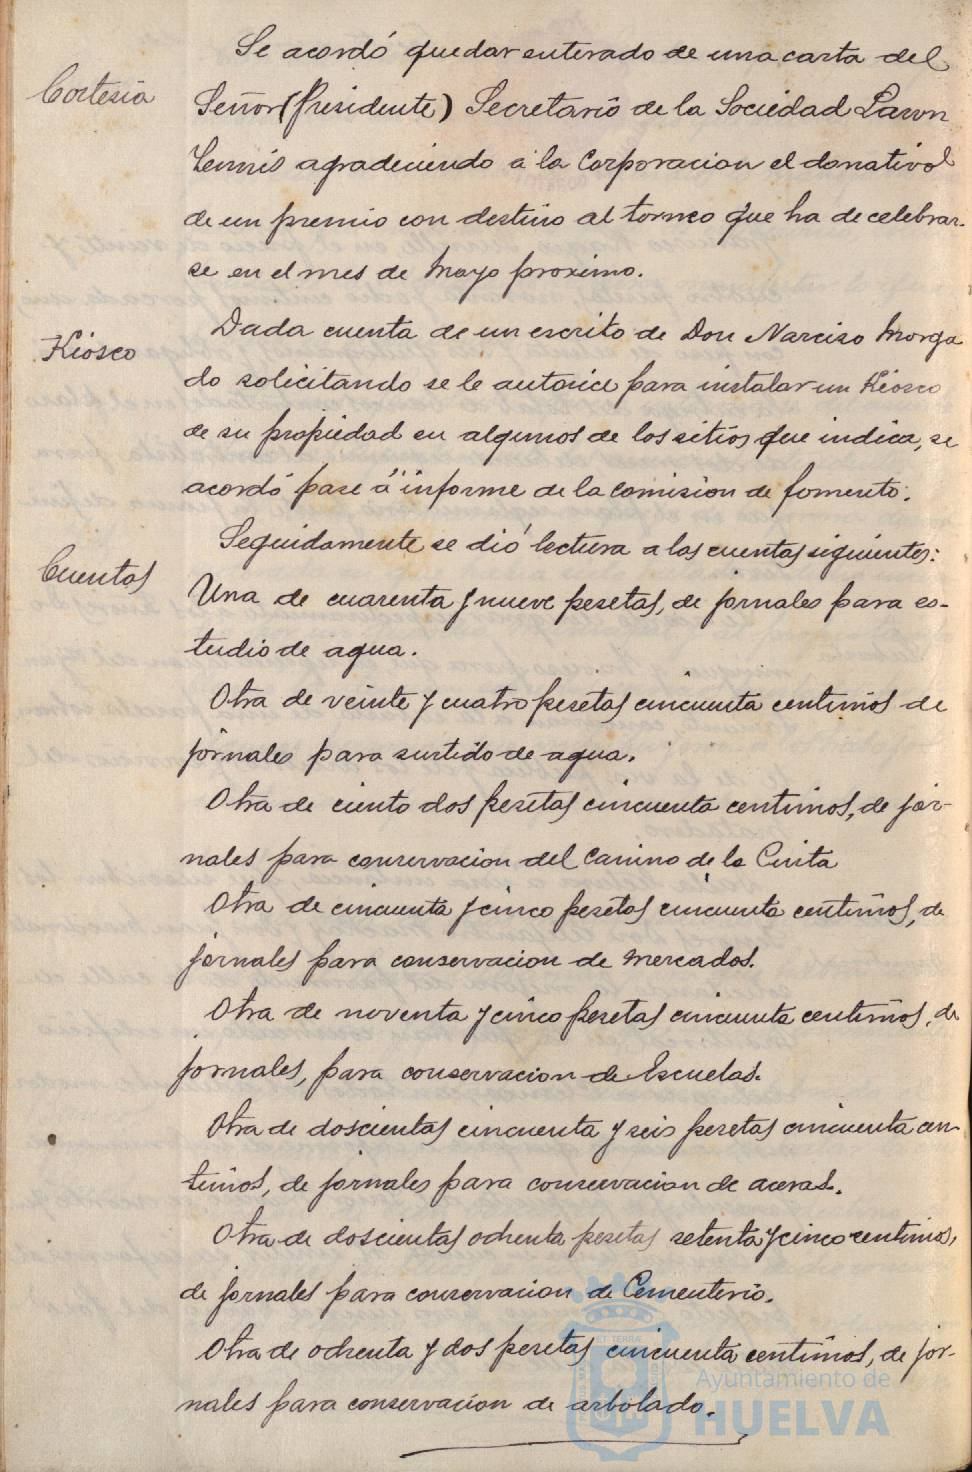 Se acordó quedar enterado de una carta del
Cortesia
Señor (Presidente) Secretario de la Sociedad Lawn
Tennis agradeciendo a la Corporacion el donativo
de un premio con destino al torneo que ha de celebrar-
se en el mes de Mayo proximo.
Dada cuenta de un escrito de Don Narciso Morga
Kiosco
do solicitando se le autorice para instalar un Kiosco
de su propiedad en algunos de los sitios que indica, se
acordó pase a informe de la Comision de fomento.
Seguidamente se dió lectura a las cuentas siguientes:
Cuentas
Una de cuarenta y nueve pesetas, de jornales para es-
tudio de agua.
Otra de veinte y cuatro pesetas cincuenta centimos de
jornales para surtido de agua.
Otra de ciento dos pesetas cincuenta centimos, de jor-
nales para conservacion del Camino de la Cinta
Otra de cincuenta y cinco pesetas cincuenta centimos, de
jornales para conservacion de Mercados.
Otra de noventa y cinco pesetas cincuenta centimos, de
jornales, para conservacion de Escuelas.
Otra de doscientas cincuenta y seis pesetas cincuenta cen-
timos, de jornales para conservacion de aceras.
Otra de doscientas ochenta pesetas setenta y cinco centimos,
de jornales para conservacion de Cementerio.
Otra de ochenta y dos pesetas cincuenta centimos, de jor-
nales para conservacion de arbolado.
Ayuntamiento de
HUELVA